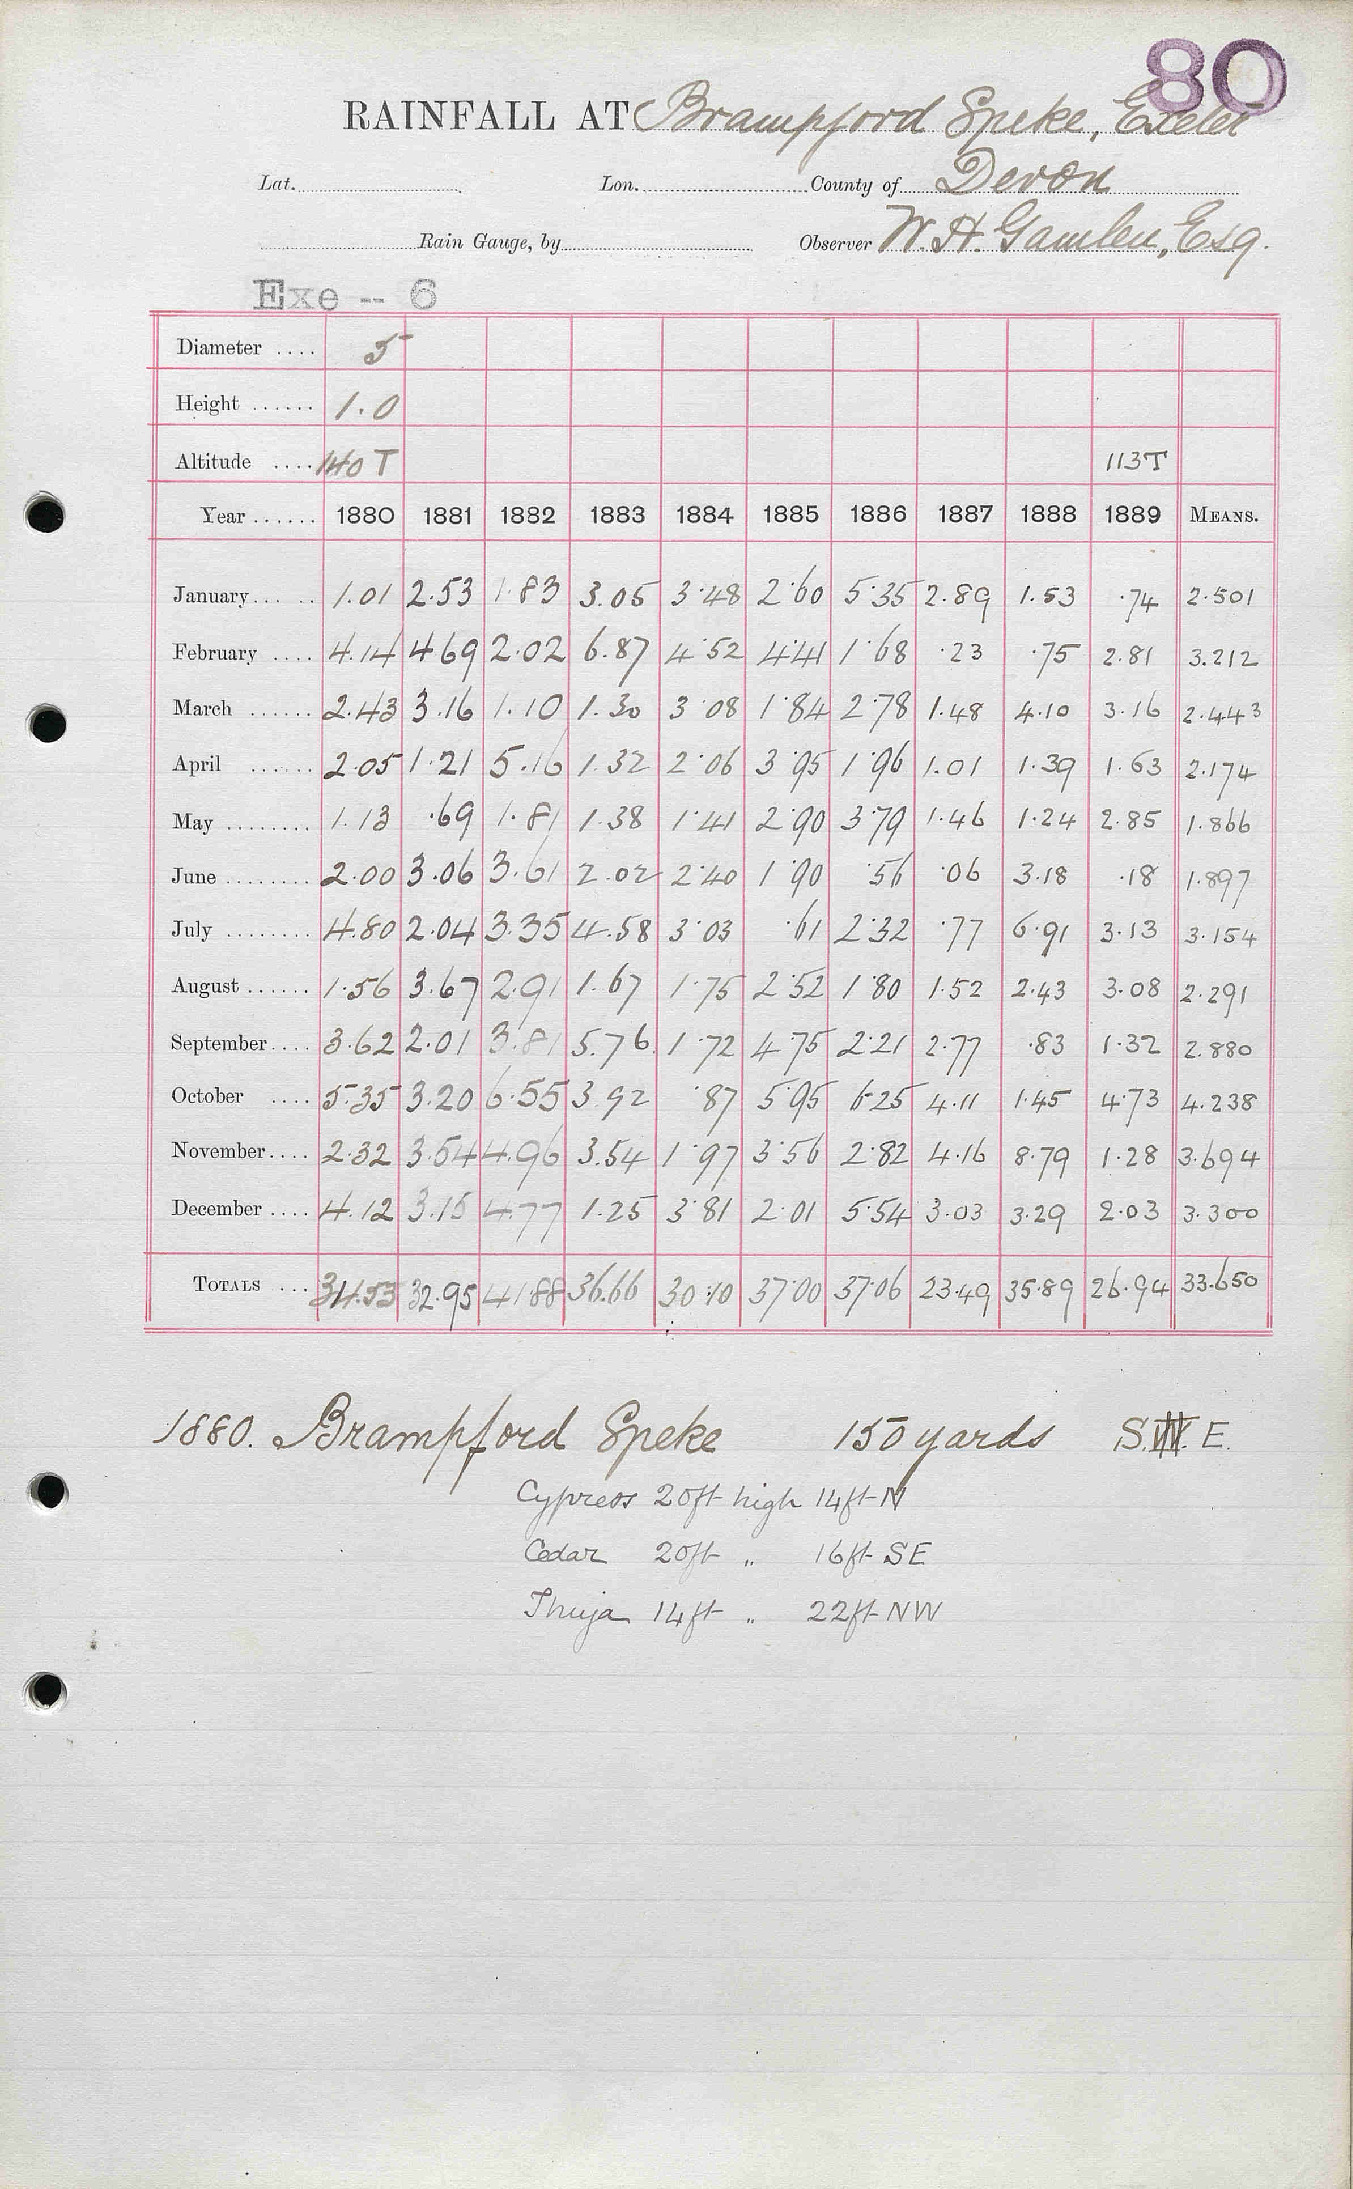 80
RAINFALL AT Brampford Speke, Exeter
Lat. Lon. County of Devon
Rain Gauge, by Observer W. H. Gamlen, Esq.
Exe -- 6
Diameter .... 5
Height ...... 1.0
Altitude .... 140 T 113T
Year ...... 1880 1881 1882 1883 1884 1885 1886 1887 1888 1889 MEANS.
January... .. 1.01 2.53 1.83 3.05 3.48 2.60 5.35 2.89 1.53 .74 2.501
February .... 4.14 4.69 2.02 6.87 4.52 4.41 1.68 .23 .75 2.81 3.212
March ...... 2.43 3.16 1.10 1.30 3.08 1.84 2.78 1.48 4.10 3.16 2.443
April ...... 2.05 1.21 5.16 1.32 2.06 3.95 1.96 1.01 1.39 1.63 2.174
May ........ 1.13 .69 1.81 1.38 1.41 2.90 3.79 1.46 1.24 2.85 1.866
June ........ 2.00 3.06 3.61 2.02 2.40 1.90 .56 .06 3.18 .18 1.897
July ........ 4.80 2.04 3.35 4.58 3.03 .61 2.32 .77 6.91 3.13 3.154
August ...... 1.56 3.67 2.91 1.67 1.75 2.52 1.80 1.52 2.43 3.08 2.291
September.... 3.62 2.01 3.81 5.76 1.72 4.75 2.21 2.77 .83 1.32 2.880
October .... 5.35 3.20 6.55 3.92 .87 5.95 6.25 4.11 1.45 4.73 4.238
November.... 2.32 3.54 4.96 3.54 1.97 3.56 2.82 4.16 8.79 1.28 3.694
December .... 4.12 3.15 4.77 1.25 3.81 2.01 5.54 3.03 3.29 2.03 3.300
TOTALS ... 34.53 32.95 41.88 36.66 30.10 37.00 37.06 23.49 35.89 26.94 33.650
1880. Brampford Speke 150 yards S.W. E.
Cypress 20ft high 14ft N
Cedar 20ft „ 16ft SE
Thuja 14ft „ 22ft NW